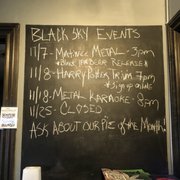 BLACK SKY EVENTS
11/7- MATINEE METAL - 3pm
*BLOOD PACT BEER RELEASE*
11/8- HARRY POTTER TRIVIA 7pm
*SIGN UP ONLINE
11/18- METAL KARAOKE - 8pm
11/25- CLOSED
ASK ABOUT OUR PIE OF THE MONTH!